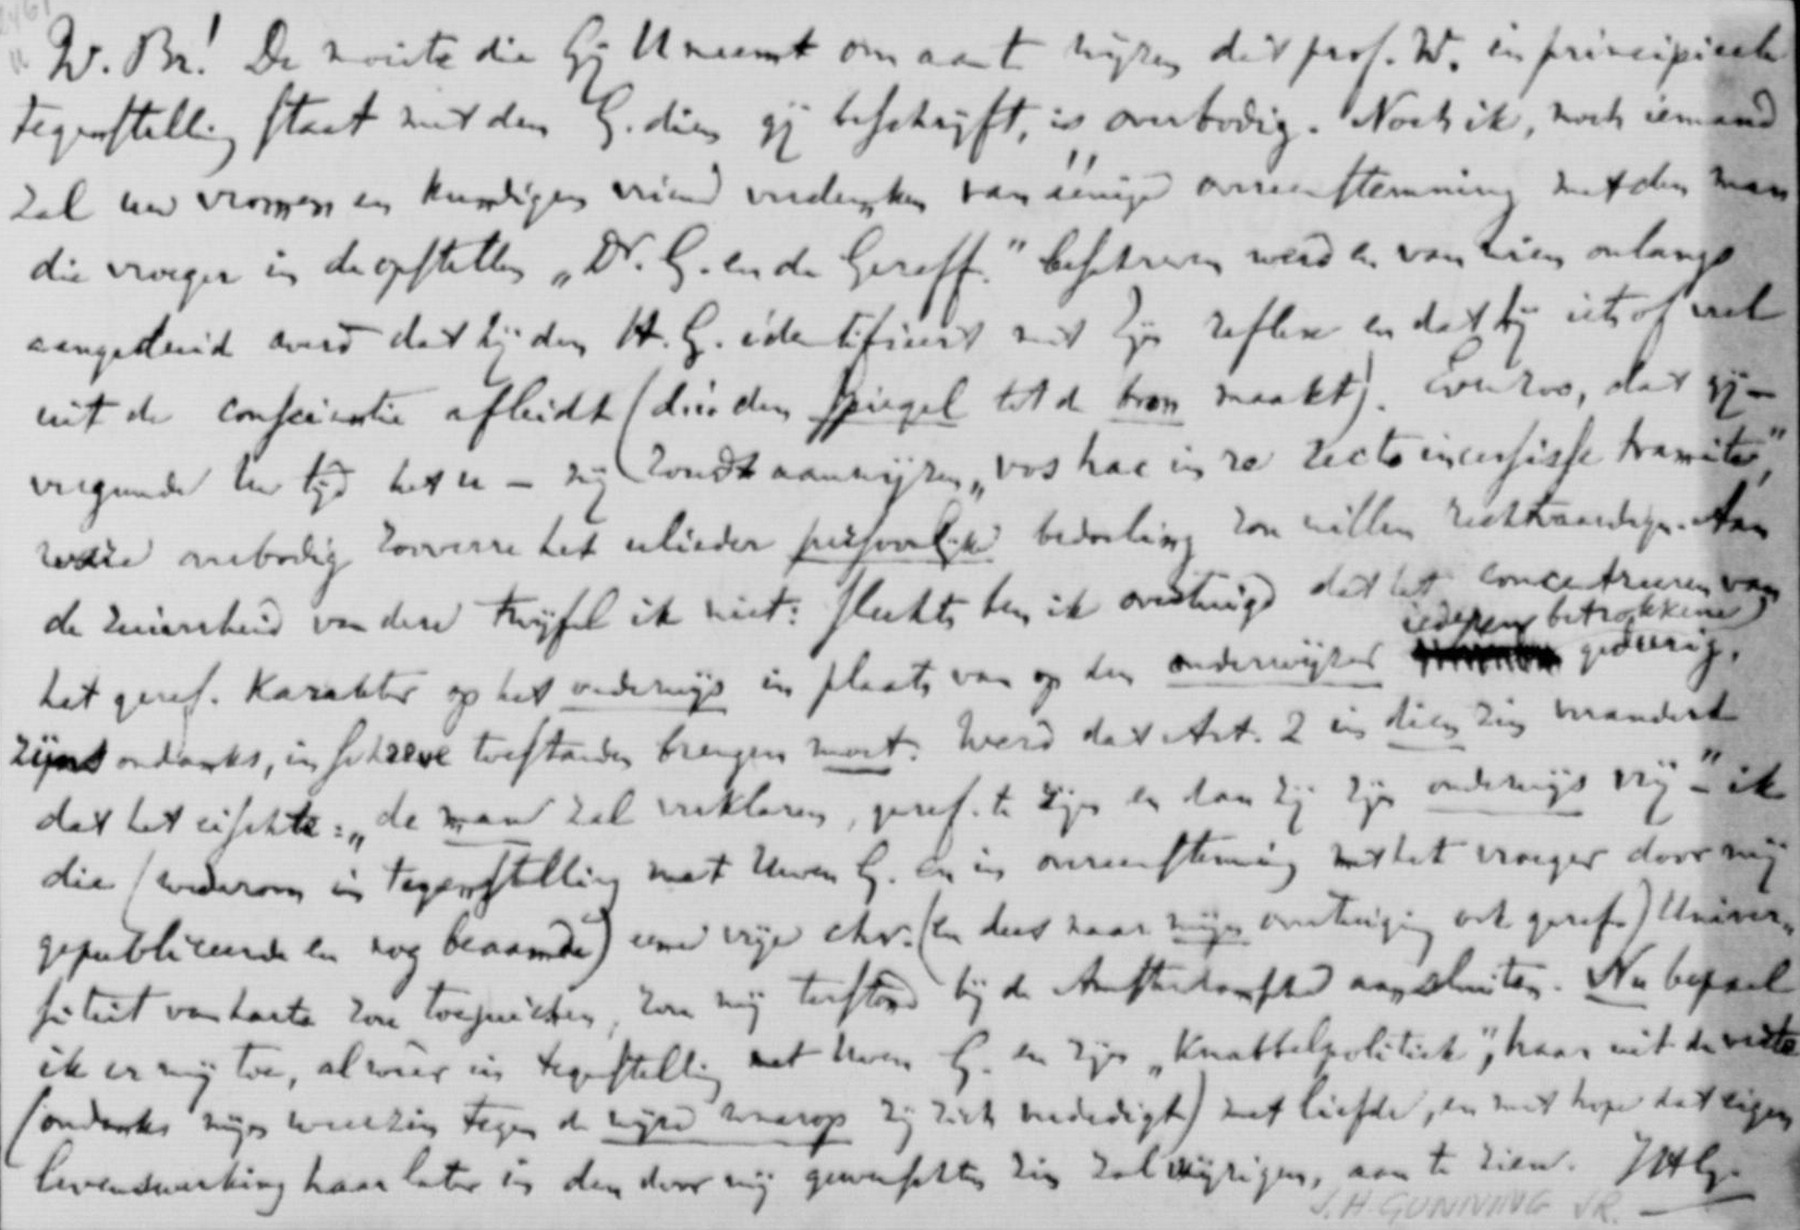 W. Br! De moeite die Gij U neemt om aan te wijzen dat prof. W. in principieele
tegenstelling staat met den G. dien gij beschrijft, is overbodig. Noch ik, noch iemand
zal uw vromen en kundigen vriend verdenken van eenige overeenstemming met den man
die vroeger in de opstellen „Dr. G. en de Gereff." beschreven werd en van wien onlangs
aangeduid werd dat hij den H. G. identificeert met zijn reflexe en dat hij iets of veel
uit de conscientie afleidt (dús den spiegel tot de bron maakt). Evenzoo, dat gij –
vergunde Uw tijd het u – mij zoudt aanwijzen „vos hac in re recto incessisse tramite",
ware overbodig zooverre het ulieder persoonlijke bedoeling zou willen rechtvaardigen. Aan
de zuiverheid van deze twijfel ik niet: slechts ben ik overtuigd dat het concentreeren van
het geref. karakter op het onderwijs in plaats van op den onderwijzer iederen betrokkene gedurig,
zijns ondanks, in scheeve toestanden brengen moet. Werd dat Art. 2 in dien zin veranderd
dat het eischte: „de man zal verklaren, geref. te zijn en dan zij zijn onderwijs vrij" – ik
die (wederom in tegenstelling met Uwen G. en in overeenstemming met het vroeger door mij
gepubliceerde en nog beaamde) eene vrije chr. (en dus naar mijn overtuiging ook geref.) Univer-
siteit van harte zou toejuichen, zou mij terstond bij de Amsterdamsche aansluiten. Nu bepaal
ik er mij toe, alweer in tegenstelling met Uwen G. en zijn „Knabbelpolitiek", haar uit de verte
(ondanks mijn weerzin tegen de wijze waarop zij zich verdedigt) met liefde, en met hope dat eigen
levenswerking haar later in den door mij gewenschten zin zal wijzigen, aan te zien. JHG.
J.H GUNNING JR.